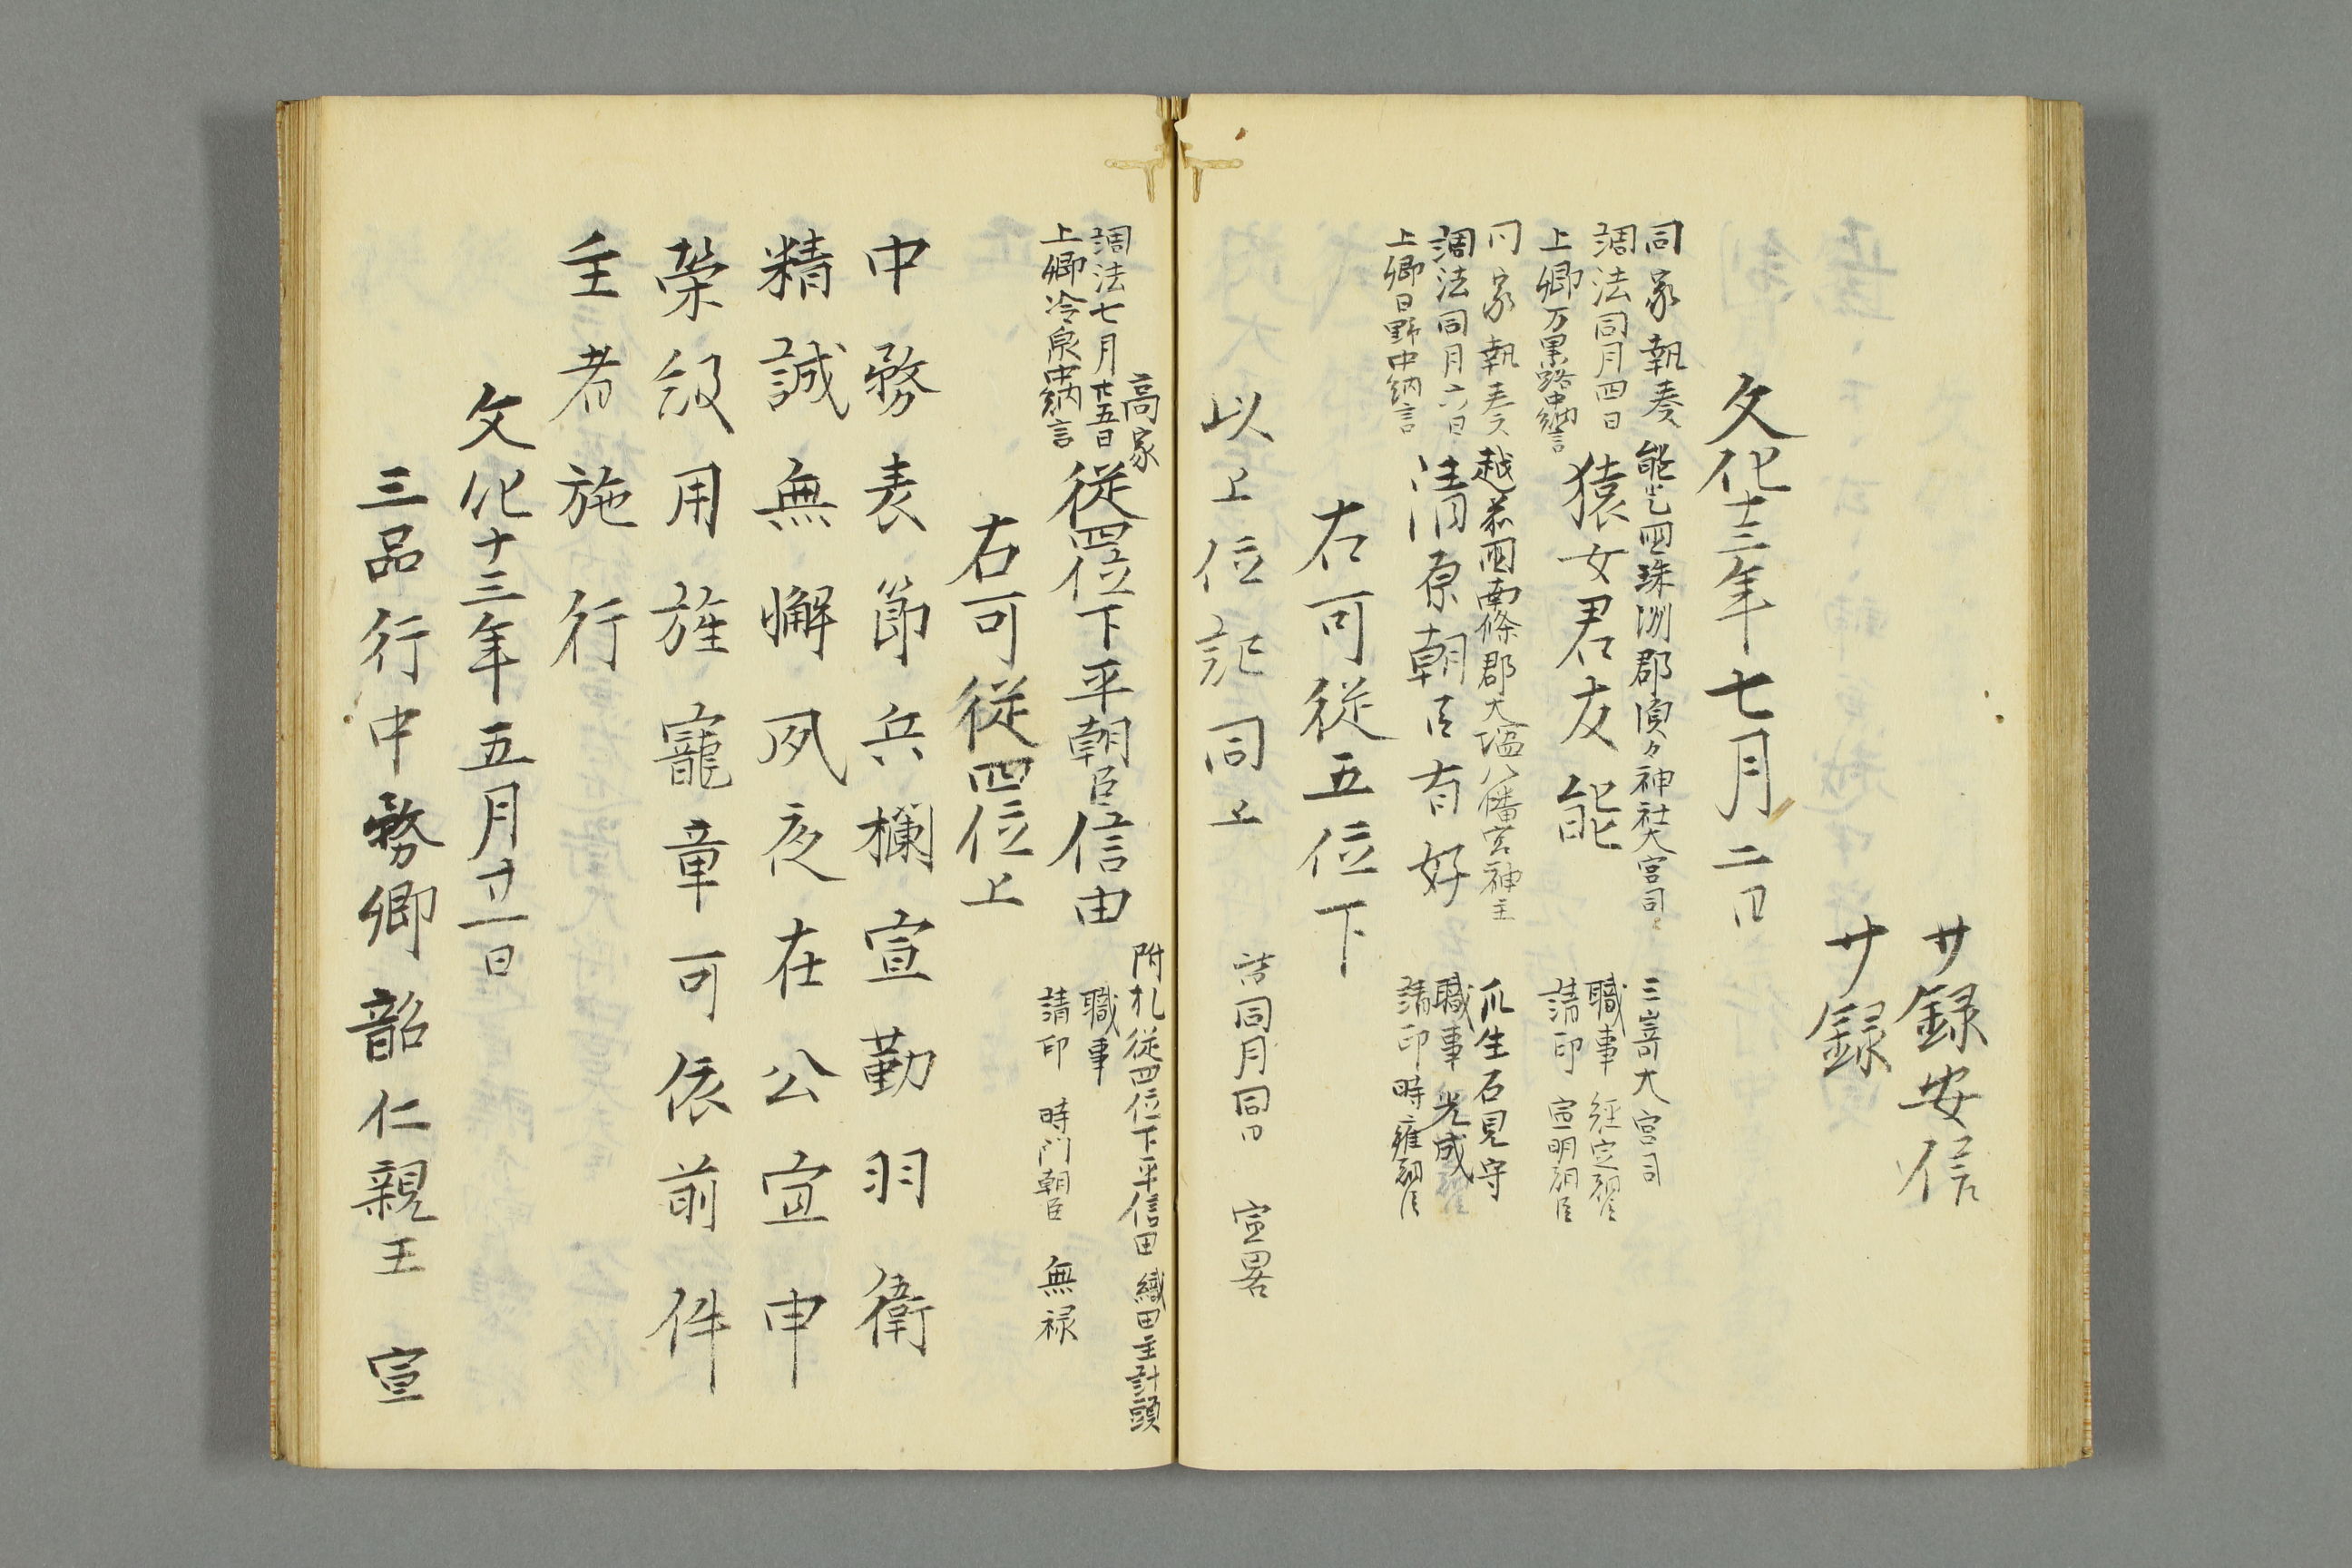 サ録安信
サ録
文化十三年七月二日
同家執奏 能登国珠洲郡須々神社大宮司
調法同月四日 猿女君友能
上卿万里路中納言
三嵜大宮司
職事 経定朝臣
請印 宣明朝臣
同家執奏 越前国南條郡大塩八幡宮神主
調法同月六日 清原朝臣有好
上卿日野中納言
瓜生石見守
職事 光成朝臣
請印 時雍朝臣
右可従五位下
以上位記同上 詰同月同日 宣畧
高家
調法七月廿五日 従四位下平朝臣信由
上卿冷泉中納言
附札従四位下平信由 織田主計頭
職事
請印 時門朝臣 無禄
右可従四位上
中務表節兵欄宣勤羽衛
精誠無懈夙夜在公宜申
栄級用旌寵章可依前件
主者施行
文化十三年五月廿一日
三品行中務卿韶仁親王 宣